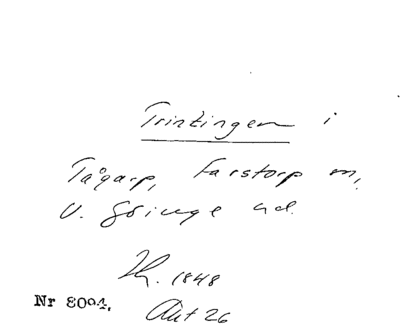 Trintingen i
Tågarp, Farstorp m,
V. Göinge hd.
1848
Nr 8004.
Akt 26